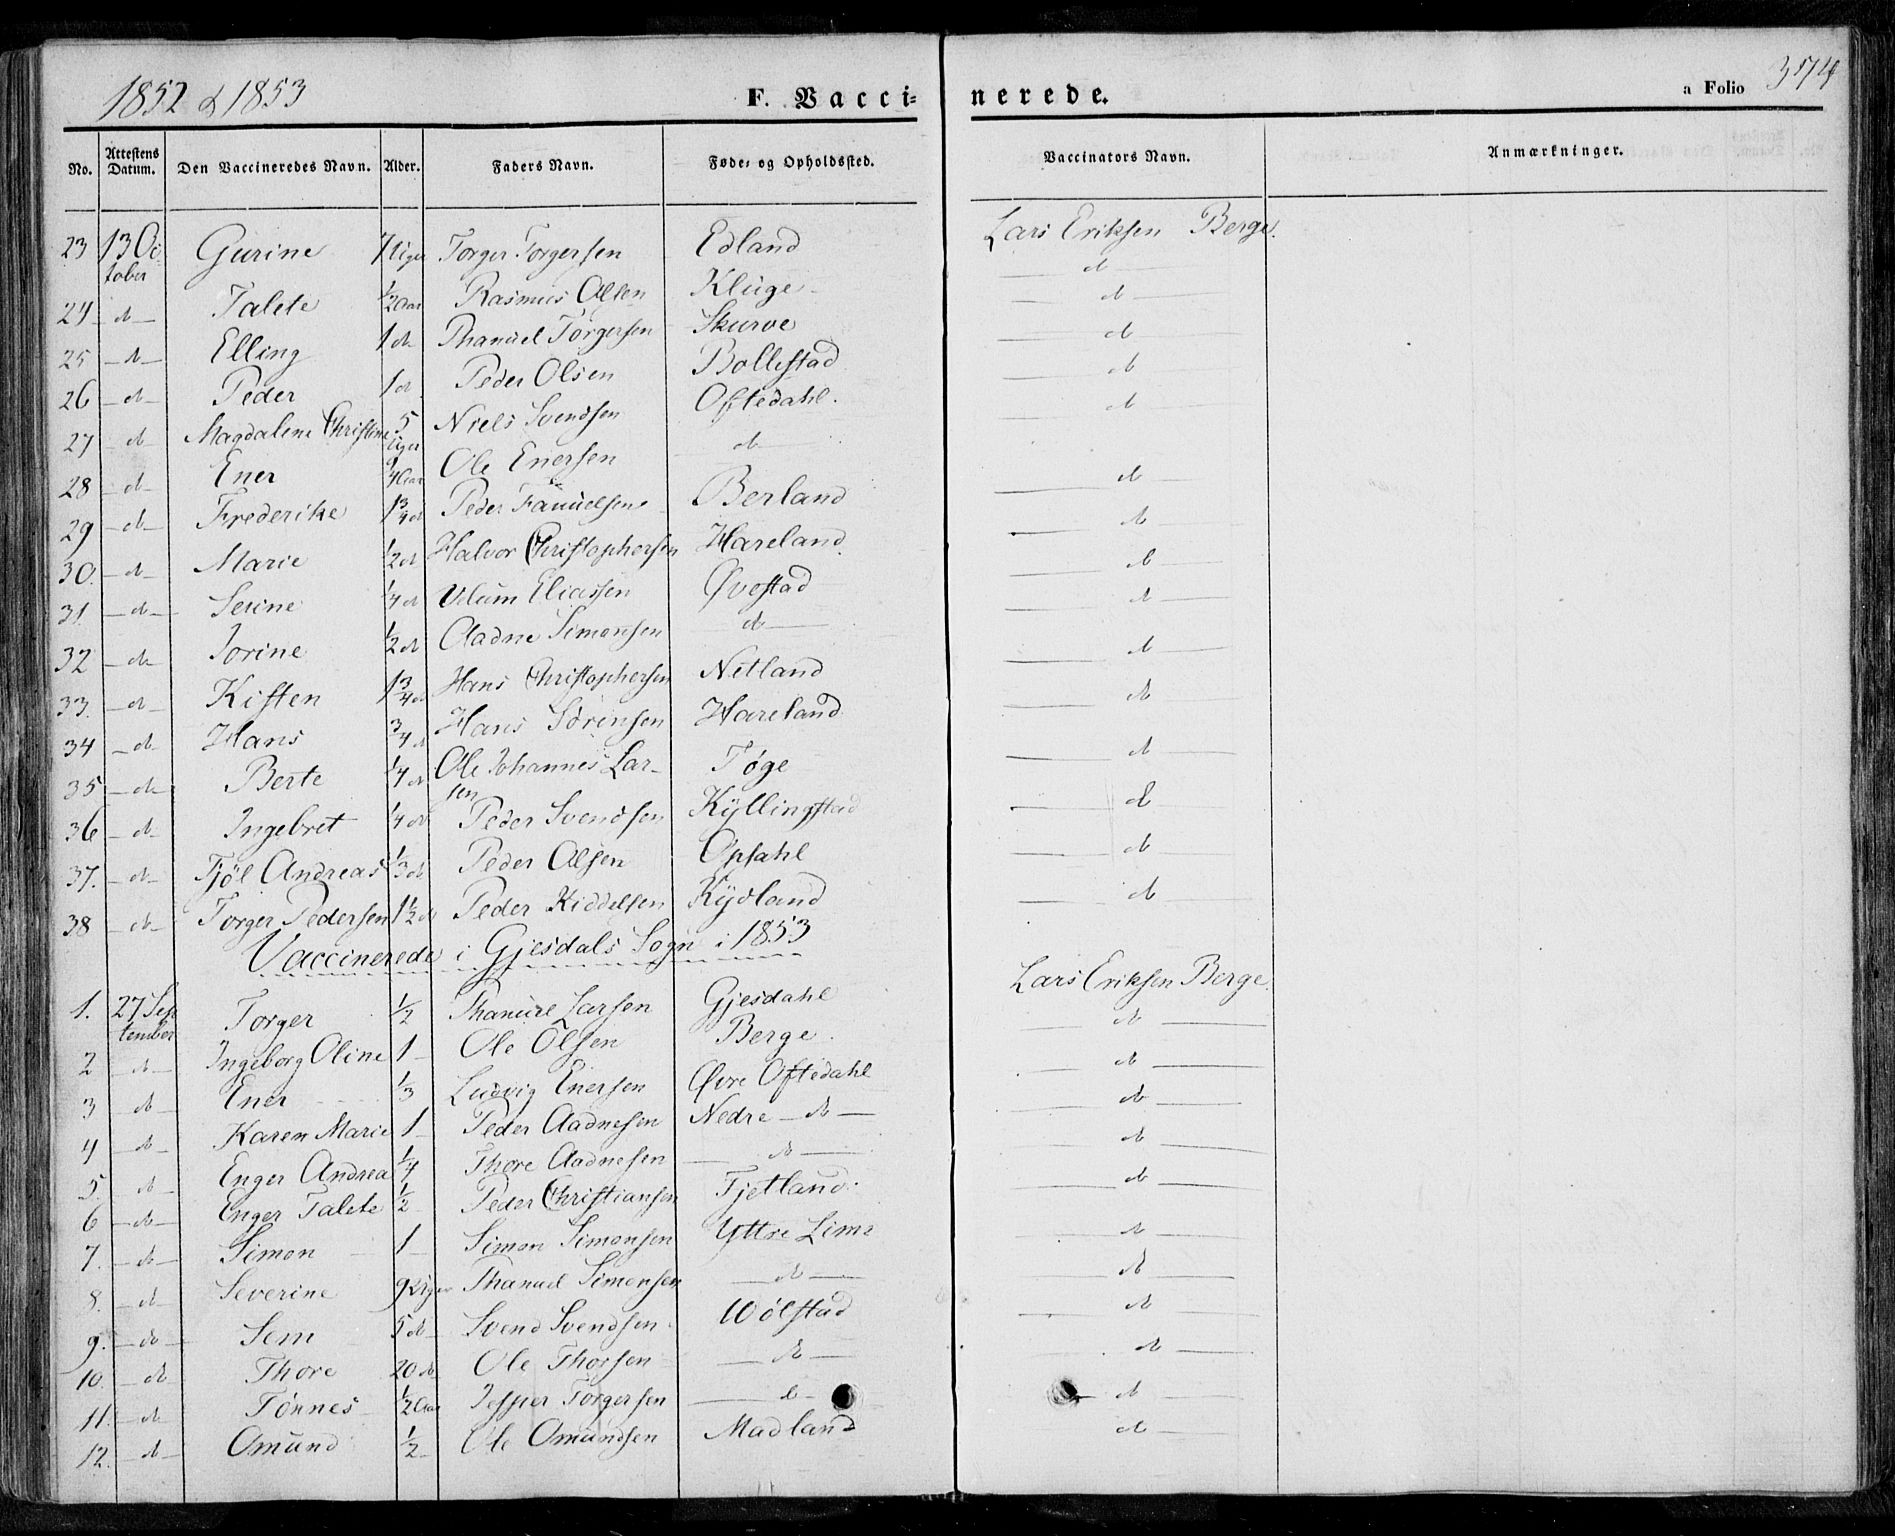 1852 & 1853 F. Vacci- nerede. a Folio 374
No. Attestens Datum. Den Vaccineredes Navn. Alder. Faders Navn. Føde- og Opholdssted. Vaccinators Navn. Anmærkninger.
23 13 Oc- Gurine 7 Uger Torger Torgersen Edland Lars Eriksen Berge.
tober
24 - d - Talete 1/2 Aar Rasmus Olsen Kluge - d -
25 - d - Elling 1 d Thanuel Torgersen Skurve - d -
26 - d - Peder 1 d Peder Olsen Bollestad - d -
27 - d - Magdalene Christine 5 Uger Niels Svendsen Oftedahl. - d -
28 - d - Ener Aar Ole Enersen - d - - d -
29 - d - Frederike 1 3/4 d Peder Fanuelsen Berland - d -
30. - d - Marie 1/2 d Halvor Christophersen Hareland. - d -
31 - d - Serine 1/4 d Eliassen Øvestad - d -
32 - d - Jorine 1/2 d Aadne Simonsen - d - - d -
33. - d - Kisten 1 3/4 d Hans Christophersen Netland - d -
34 - d - Hans 3/4 d Hans Sörensen Hareland - d -
35 - d - Berte 1/4 d Ole Johannes Lar- Tøge - d -
sen
36 - d - Ingebret 1/4 d Peder Svendsen Kyllingstad - d -
37. - d - Fjöl Andreas 1/3 d Peder Olsen Opsahl - d -
38 - d - Torger Pedersen 1 1/2 d Peder Kiddelsen Kydland - d -
Vaccinerede i Gjesdals Sogn i 1853
1. 27 Sep Torger 1/2 Thanuel Larsen Gjesdahl Lars Eriksen Berge.
tember
2 - d - Ingeborg Oline 1 - Ole Olsen Berge. - d -
3 - d - Ener 1/3 Ludvig Enersen Øvre Oftedahl - d -
4 - d - Karen Marie 1 - Peder Aadnesen Nedre - d - - d -
5. - d - Enger Andrea 1/4 Thore Aadnesen - d - - d -
6 - d - Enger Talete 1/2 Peder Christiansen Fjetland. - d -
7. - d - Simon 1 - Simon Simonsen Yttre Lima - d -
8. - d - Severine 9 Uger Thanuel Simonsen - d - - d -
9. - do - Sem 5 d - Svend Svendsen Wölstad - d -
10. - d Thore 20 d Ole Thorsen - d - - d -
11. - d Tönnes 1/2 Aar Jesper Torgersen - d - - d -
12. - d - Omund 1/2 - Ole Omundsen Madland - d -